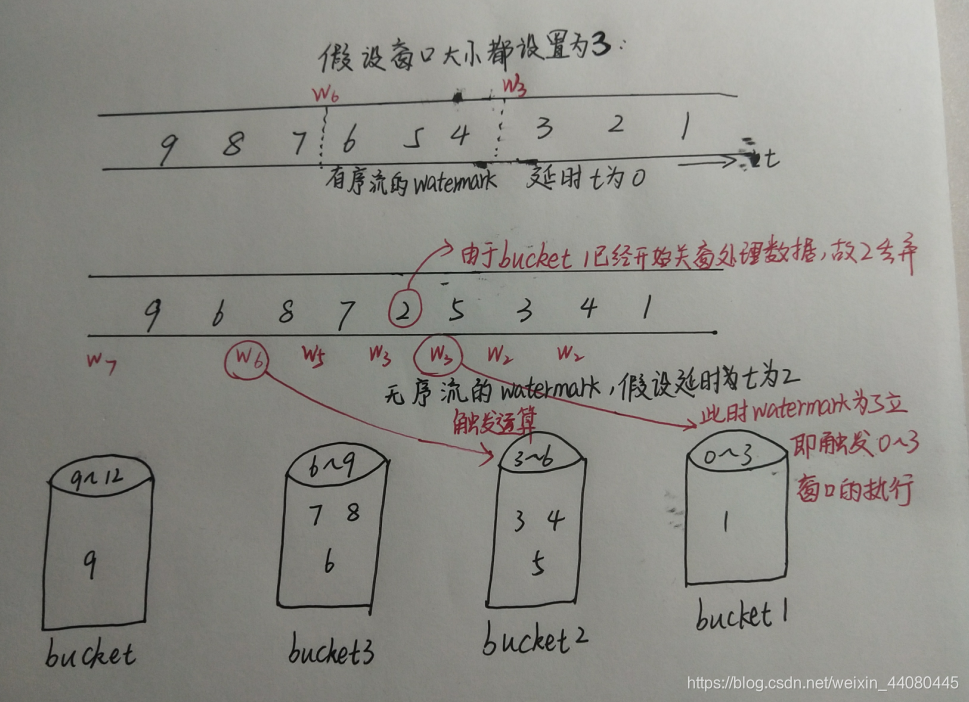 假设窗口大小都设置为3:
W6 W3
9 8 7 6 5 4 3 2 1
t
有序流的watermark 延时t为0
由于bucket 1已经开始关窗处理数据,故2丢弃
9 6 8 7 2 5 3 4 1
W7 W6 W5 W3 W3 W2 W2
无序流的watermark,假设延时为t为2
触发运算
此时watermark为3立
即触发0~3
窗口的执行
9~12 6~9 3~6 0~3
7 8 3 4 1
9 6 5
bucket bucket3 bucket2 bucket1
https://blog.csdn.net/weixin_44080445